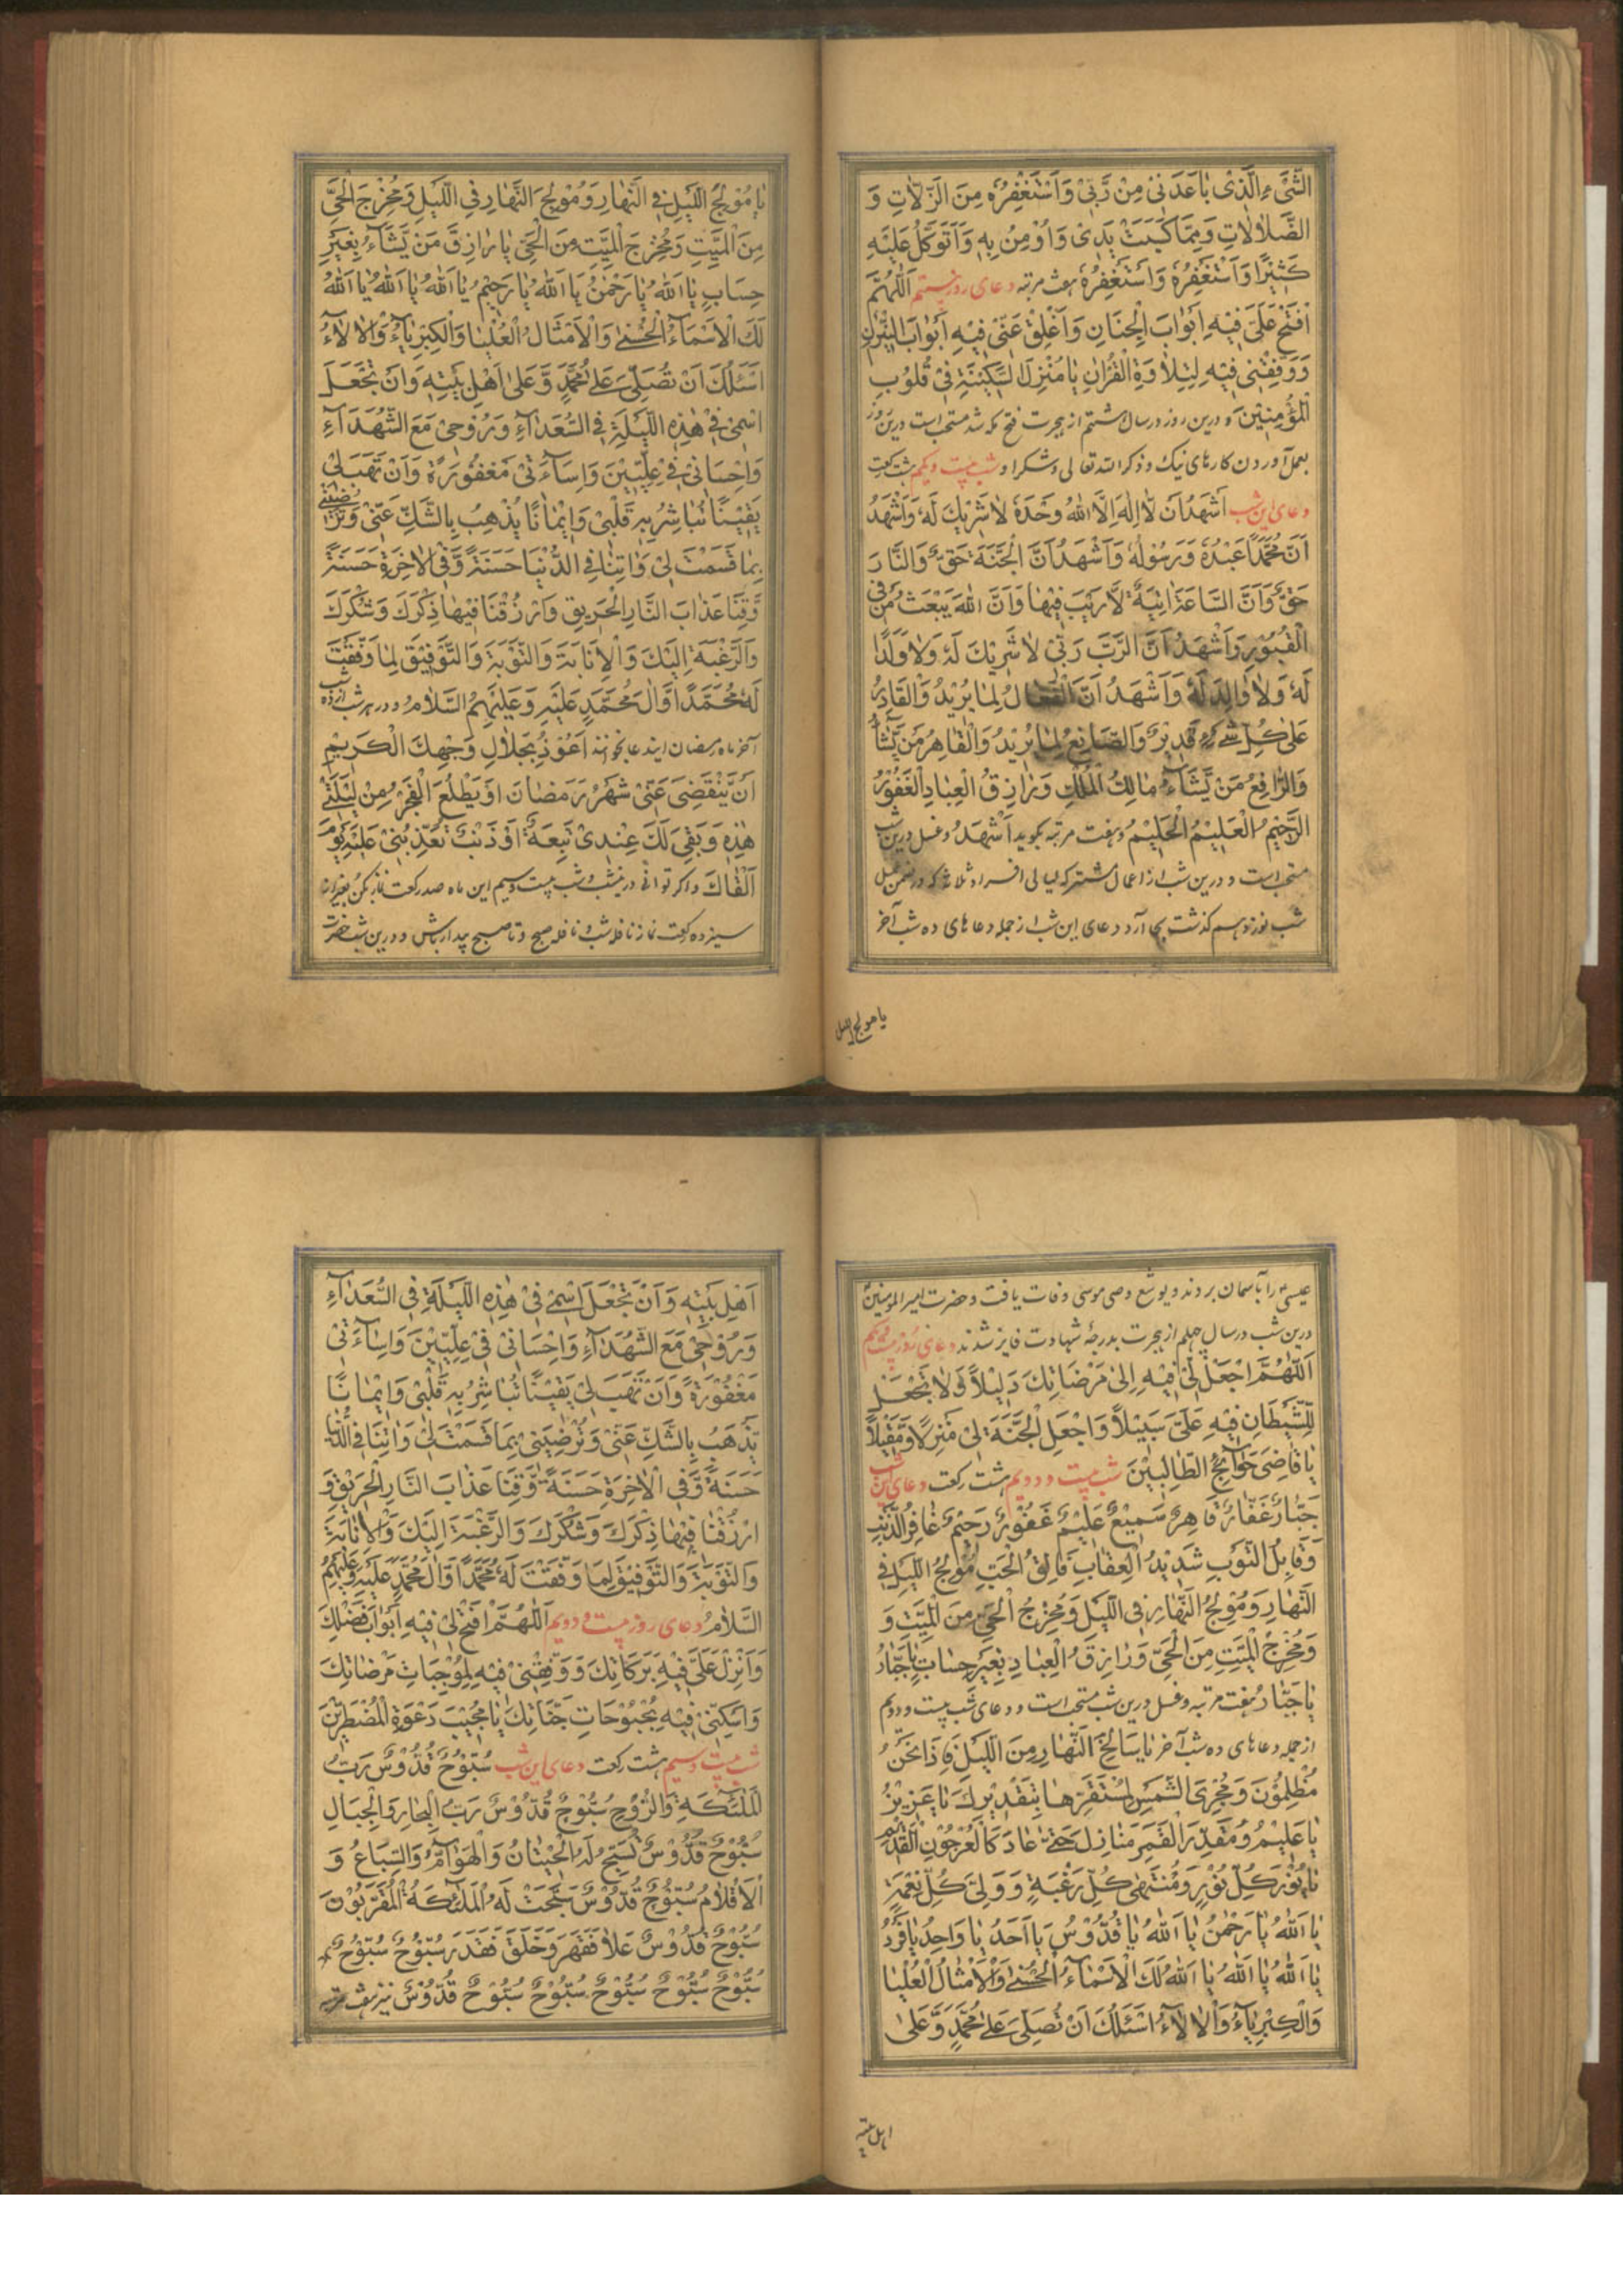 الشَّیْءِ الَّذِیْ بَاعَدَنِیْ مِنْ رَّبِّیْ وَاَسْتَغْفِرُهٗ مِنَ الزَّلَّاتِ وَ
الضَّلَالَاتِ وَمِمَّا كَسَبَتْ یَدِیْ وَاُوْمِنُ بِهٖ وَاَتَوَكَّلُ عَلَیْهِ
كَثِیْرًا وَاَسْتَغْفِرُهٗ وَاَسْتَغْفِرُهٗ هفت مرتبه دعای روز بیستم اَللّٰهُمَّ
افْتَحْ عَلَیَّ فِیْهِ اَبْوَابَ الْجِنَانِ وَاَغْلِقْ عَنِّیْ فِیْهِ اَبْوَابَ النِّیْرَانِ
وَوَفِّقْنِیْ فِیْهِ لِتِلَاوَةِ الْقُرْاٰنِ یَا مُنْزِلَ السَّكِیْنَةِ فِیْ قُلُوْبِ
الْمُؤْمِنِیْنَ و درین روز در سال هشتم از هجرت فتح مکه شد مستحب است درین روز
بعمل آوردن کارهای نیک و ذکر الله تعالی و شکر او شب بیست و یکم هشت رکعت
دعای این شب اَشْهَدُ اَنْ لَّا اِلٰهَ اِلَّا اللّٰهُ وَحْدَهٗ لَا شَرِیْكَ لَهٗ وَاَشْهَدُ
اَنَّ مُحَمَّدًا عَبْدُهٗ وَرَسُوْلُهٗ وَاَشْهَدُ اَنَّ الْجَنَّةَ حَقٌّ وَالنَّارَ
حَقٌّ وَاَنَّ السَّاعَةَ اٰتِیَةٌ لَّا رَیْبَ فِیْهَا وَاَنَّ اللّٰهَ یَبْعَثُ مَنْ فِی
الْقُبُوْرِ وَاَشْهَدُ اَنَّ الرَّبَّ رَبِّیْ لَا شَرِیْكَ لَهٗ وَلَا وَلَدًا
لَهٗ وَلَا وَالِدَ لَهٗ وَاَشْهَدُ اَنَّ الْفَعَّالُ لِمَا یُرِیْدُ وَالْقَادِرُ
عَلٰی كُلِّ شَیْءٍ قَدِیْرٌ وَالصَّانِعُ لِمَا یُرِیْدُ وَالْقَاهِرُ مَنْ یَّشَآءُ
وَالرَّافِعُ مَنْ یَّشَآءُ مَالِكُ الْمُلْكِ وَرَازِقُ الْعِبَادِ الْغَفُوْرُ
الرَّحِیْمُ الْعَلِیْمُ الْحَلِیْمُ و هفت مرتبه بگوید اَشْهَدُ و غسل درین شب
مستحب است و درین شب از اعمال مشترکه لیالی افراد ثلاثه که در ضمن عمل
شب نوزدهم گذشت بجا آرد دعای این شب از جمله دعاهای ده شب آخر
یا مولج اللیل
یَا مُوْلِجَ اللَّیْلِ فِی النَّهَارِ وَمُوْلِجَ النَّهَارِ فِی اللَّیْلِ وَمُخْرِجَ الْحَیِّ
مِنَ الْمَیِّتِ وَمُخْرِجَ الْمَیِّتِ مِنَ الْحَیِّ یَا رَازِقَ مَنْ یَّشَآءُ بِغَیْرِ
حِسَابٍ یَا اَللّٰهُ یَا رَحْمٰنُ یَا اَللّٰهُ یَا رَحِیْمُ یَا اَللّٰهُ یَا اَللّٰهُ یَا اَللّٰهُ
لَكَ الْاَسْمَآءُ الْحُسْنٰی وَالْاَمْثَالُ الْعُلْیَا وَالْكِبْرِیَآءُ وَالْاٰلَآءُ
اَسْئَلُكَ اَنْ تُصَلِّیَ عَلٰی مُحَمَّدٍ وَّعَلٰی اَهْلِ بَیْتِهٖ وَاَنْ تَجْعَلَ
اسْمِیْ فِیْ هٰذِهِ اللَّیْلَةِ فِی السُّعَدَآءِ وَرُوْحِیْ مَعَ الشُّهَدَآءِ
وَاِحْسَانِیْ فِیْ عِلِّیِّیْنَ وَاِسَآءَتِیْ مَغْفُوْرَةً وَاَنْ تَهَبَ لِیْ
یَقِیْنًا تُبَاشِرُ بِهٖ قَلْبِیْ وَاِیْمَانًا یُذْهِبُ بِالشَّكِّ عَنِّیْ وَتُرْضِیَنِیْ
بِمَا قَسَمْتَ لِیْ وَاٰتِنَا فِی الدُّنْیَا حَسَنَةً وَّفِی الْاٰخِرَةِ حَسَنَةً
وَّقِنَا عَذَابَ النَّارِ الْحَرِیْقِ وَارْزُقْنَا فِیْهَا ذِكْرَكَ وَشُكْرَكَ
وَالرَّغْبَةَ اِلَیْكَ وَالْاِنَابَةَ وَالتَّوْبَةَ وَالتَّوْفِیْقَ لِمَا وَفَّقْتَ
لَهٗ مُحَمَّدًا وَّاٰلَ مُحَمَّدٍ عَلَیْهِ وَعَلَیْهِمُ السَّلَامُ و در هر شب از ده شب
آخر ماه رمضان ایندعا بخوانند اَعُوْذُ بِجَلَالِ وَجْهِكَ الْكَرِیْمِ
اَنْ یَّنْقَضِیَ عَنِّیْ شَهْرُ رَمَضَانَ اَوْ یَطْلُعَ الْفَجْرُ مِنْ لَیْلَتِیْ
هٰذِهٖ وَبَقِیَ لَكَ عِنْدِیْ تَبِعَةٌ اَوْ ذَنْبٌ تُعَذِّبُنِیْ عَلَیْهِ یَوْمَ
اَلْقَاكَ و اگر توانی درینشب و شب بیست و سیم این ماه صد رکعت نماز بکن بغیر از
سیزده رکعت نماز نافله شب و نافله صبح و تا صبح بیدار باش و درین شب حضرت
عیسی را بآسمان بردند و یوشع وصی موسی وفات یافت و حضرت امیر المومنین
درین شب در سال چهلم از هجرت بدرجهٔ شهادت فایز شدند دعای روز بیست و یکم
اَللّٰهُمَّ اجْعَلْ لِّیْ فِیْهِ اِلٰی مَرْضَاتِكَ دَلِیْلًا وَّلَا تَجْعَلْ
لِلشَّیْطَانِ فِیْهِ عَلَیَّ سَبِیْلًا وَاجْعَلِ الْجَنَّةَ لِیْ مَنْزِلًا وَّمَقِیْلًا
یَا قَاضِیَ حَوَآئِجِ الطَّالِبِیْنَ شب بیست و دویم هشت رکعت دعای این شب
جَبَّارٌ غَفَّارٌ قَاهِرٌ سَمِیْعٌ عَلِیْمٌ غَفُوْرٌ رَحِیْمٌ غَافِرُ الذَّنْبِ
وَقَابِلُ التَّوْبِ شَدِیْدُ الْعِقَابِ فَالِقُ الْحَبِّ مُوْلِجُ اللَّیْلِ فِی
النَّهَارِ وَمُوْلِجُ النَّهَارِ فِی اللَّیْلِ وَمُخْرِجُ الْحَیِّ مِنَ الْمَیِّتِ وَ
وَمُخْرِجُ الْمَیِّتِ مِنَ الْحَیِّ وَرَازِقُ الْعِبَادِ بِغَیْرِ حِسَابٍ یَا جَبَّارُ
یَا جَبَّارُ هفت مرتبه و غسل درین شب مستحب است و دعای شب بیست و دویم
از جمله دعاهای ده شب آخر یَا سَالِخَ النَّهَارِ مِنَ اللَّیْلِ فَاِذَا نَحْنُ
مُظْلِمُوْنَ وَمُجْرِیَ الشَّمْسِ لِمُسْتَقَرِّهَا بِتَقْدِیْرِكَ یَا عَزِیْزُ
یَا عَلِیْمُ وَمُقَدِّرَ الْقَمَرِ مَنَازِلَ حَتّٰی عَادَ كَالْعُرْجُوْنِ الْقَدِیْمِ
یَا نُوْرَ كُلِّ نُوْرٍ وَمُنْتَهٰی كُلِّ رَغْبَةٍ وَوَلِیَّ كُلِّ نِعْمَةٍ
یَا اَللّٰهُ یَا رَحْمٰنُ یَا اَللّٰهُ یَا قُدُّوْسُ یَا اَحَدُ یَا وَاحِدُ یَا فَرْدُ
یَا اَللّٰهُ یَا اَللّٰهُ یَا اَللّٰهُ لَكَ الْاَسْمَآءُ الْحُسْنٰی وَالْاَمْثَالُ الْعُلْیَا
وَالْكِبْرِیَآءُ وَالْاٰلَآءُ اَسْئَلُكَ اَنْ تُصَلِّیَ عَلٰی مُحَمَّدٍ وَّعَلٰی
اهل بیته
اَهْلِ بَیْتِهٖ وَاَنْ تَجْعَلَ اسْمِیْ فِیْ هٰذِهِ اللَّیْلَةِ فِی السُّعَدَآءِ
وَرُوْحِیْ مَعَ الشُّهَدَآءِ وَاِحْسَانِیْ فِیْ عِلِّیِّیْنَ وَاِسَآءَتِیْ
مَغْفُوْرَةً وَاَنْ تَهَبَ لِیْ یَقِیْنًا تُبَاشِرُ بِهٖ قَلْبِیْ وَاِیْمَانًا
یَذْهَبُ بِالشَّكِّ عَنِّیْ وَتُرْضِیَنِیْ بِمَا قَسَمْتَ لِیْ وَاٰتِنَا فِی الدُّنْیَا
حَسَنَةً وَّفِی الْاٰخِرَةِ حَسَنَةً وَّقِنَا عَذَابَ النَّارِ الْحَرِیْقِ وَ
ارْزُقْنَا فِیْهَا ذِكْرَكَ وَشُكْرَكَ وَالرَّغْبَةَ اِلَیْكَ وَالْاِنَابَةَ
وَالتَّوْبَةَ وَالتَّوْفِیْقَ لِمَا وَفَّقْتَ لَهٗ مُحَمَّدًا وَّاٰلَ مُحَمَّدٍ عَلَیْهِ وَعَلَیْهِمُ
السَّلَامُ دعای روز بیست و دویم اَللّٰهُمَّ افْتَحْ لِیْ فِیْهِ اَبْوَابَ فَضْلِكَ
وَاَنْزِلْ عَلَیَّ فِیْهِ بَرَكَاتِكَ وَوَفِّقْنِیْ فِیْهِ لِمُوْجِبَاتِ مَرْضَاتِكَ
وَاَسْكِنِّیْ فِیْهِ بُحْبُوْحَاتِ جَنَّاتِكَ یَا مُجِیْبَ دَعْوَةِ الْمُضْطَرِّیْنَ
شب بیست و سیم هشت رکعت دعای این شب سُبُّوْحٌ قُدُّوْسٌ رَبُّ
الْمَلٰئِكَةِ وَالرُّوْحِ سُبُّوْحٌ قُدُّوْسٌ رَبُّ الْبِحَارِ وَالْجِبَالِ
سُبُّوْحٌ قُدُّوْسٌ تُسَبِّحُ لَهُ الْحِیْتَانُ وَالْهَوَآمُّ وَالسِّبَاعُ وَ
الْاَقْلَامُ سُبُّوْحٌ قُدُّوْسٌ سَبَّحَتْ لَهُ الْمَلٰئِكَةُ الْمُقَرَّبُوْنَ
سُبُّوْحٌ قُدُّوْسٌ عَلَا فَقَهَرَ وَخَلَقَ فَقَدَرَ سُبُّوْحٌ سُبُّوْحٌ
سُبُّوْحٌ سُبُّوْحٌ سُبُّوْحٌ سُبُّوْحٌ سُبُّوْحٌ قُدُّوْسٌ نیز هفت مرتبه